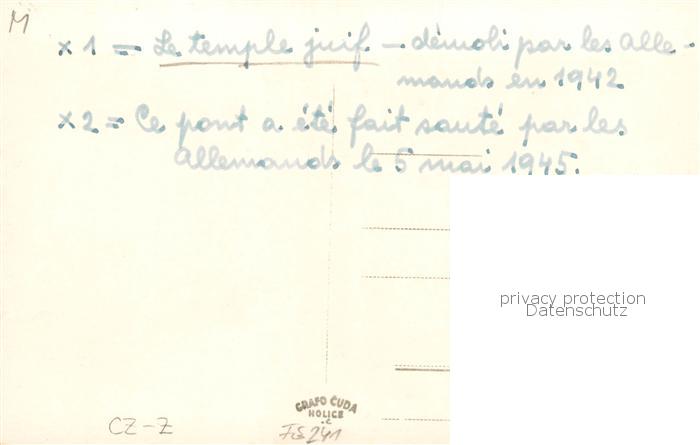 M
x 1 = Le temple juif – démoli par les alle-
mands en 1942
x 2 = Ce pont a été fait sauté par les
allemands le 5 mai 1945.
privacy protection
Datenschutz
GRAFO ČUDA
HOLICE
CZ-Z